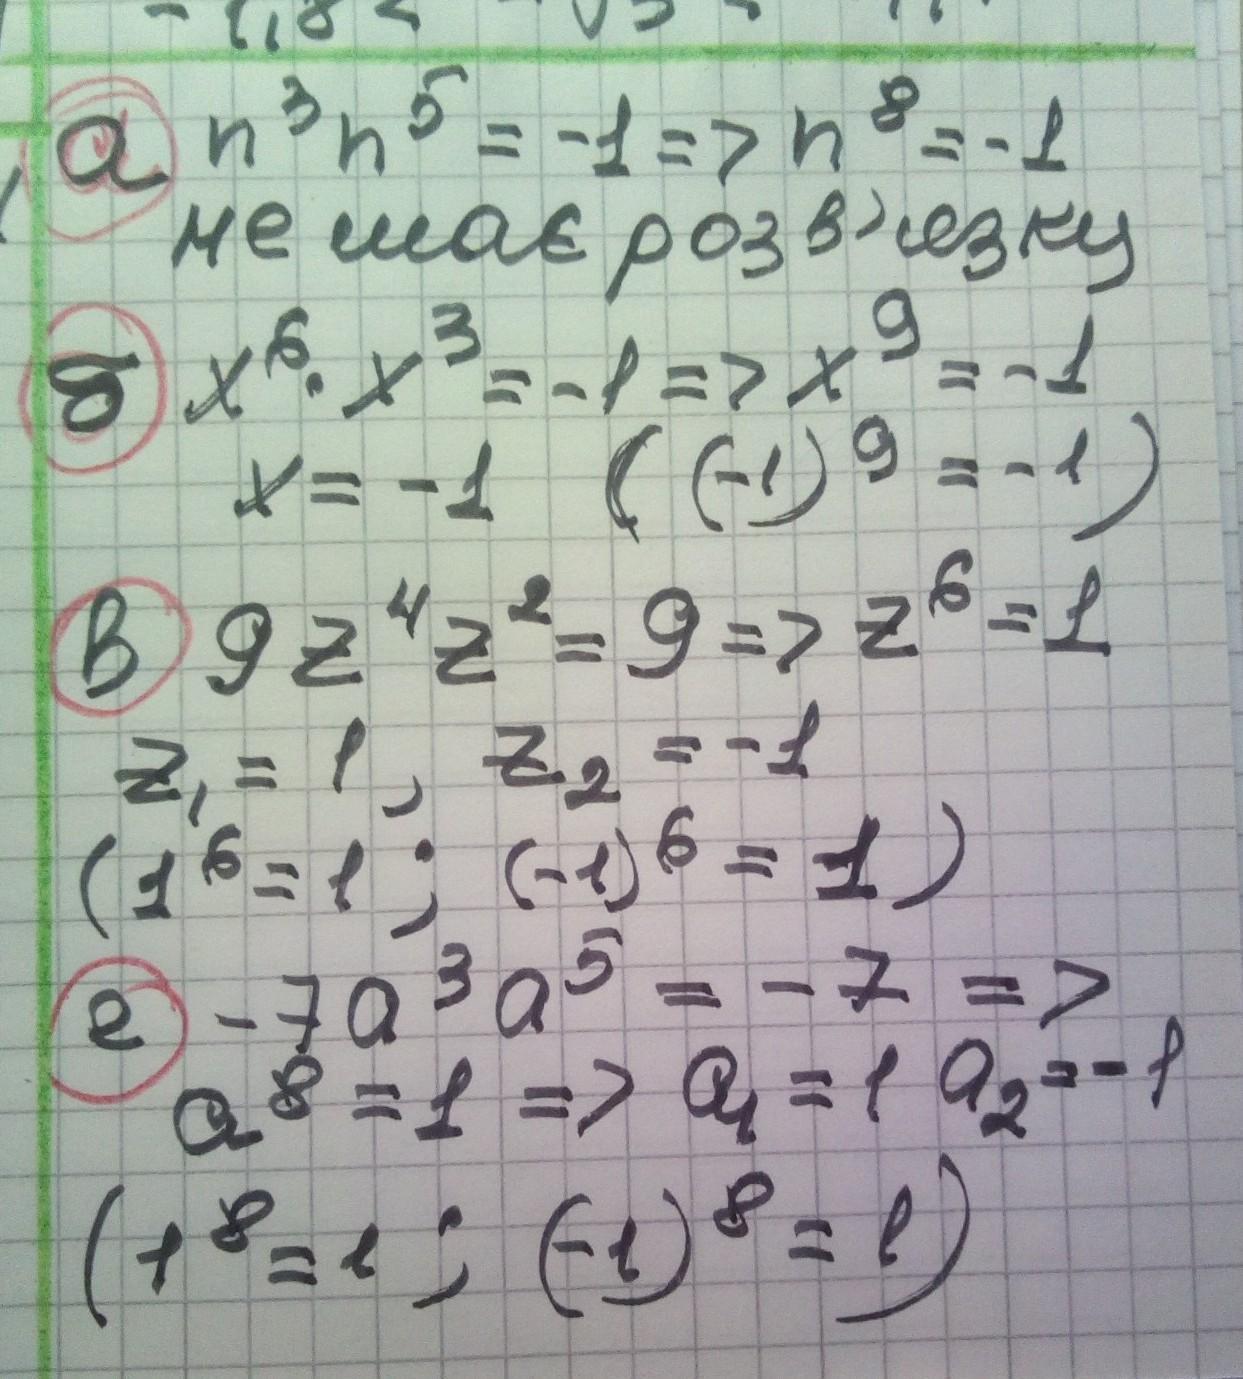 а n³n⁵ = -1 => n⁸ = -1
не має розв'язку
б x⁶ · x³ = -1 => x⁹ = -1
x = -1 ((-1)⁹ = -1)
в 9z⁴z² = 9 => z⁶ = 1
z₁ = 1, z₂ = -1
(1⁶ = 1; (-1)⁶ = 1)
г -7a³a⁵ = -7 =>
a⁸ = 1 => a₁ = 1 a₂ = -1
(1⁸ = 1; (-1)⁸ = 1)